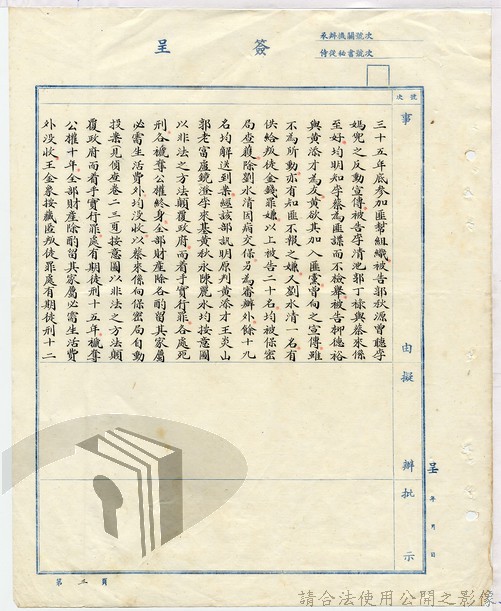 簽呈
來辦機關號次
侍從秘書號次
號次
事由擬辦批示
呈 年 月 日
三十五年底參加匪幫組織被告郭秋源曾聽李
媽兜之反動宣傳被告李清池郭丁祿與蔡來係
至好均明知李蔡為匪諜而不檢舉被告柳德裕
與黃添才為友黃欲其加入匪黨曾向之宣傳雖
不為所動亦有知匪不報之嫌又劉水清一名有
供給叛徒金錢罪嫌以上被告二十名均被保密
局查獲除劉水清因病交保另為審辦外餘十九
名均解送到案經該部訊明原判黃添才王炎山
郭老富盧鏡澄李來基黃秋永陳麗水均按意圖
以非法之方法顛覆政府而着手實行罪各處死
刑各褫奪公權終身全部財產除酌留其家屬
必需生活費外均沒收以蔡來係向保密局自動
投案見偵查卷二三頁按意圖以非法之方法顛
覆政府而着手實行罪處有期徒刑十五年褫奪
公權十年全部財產除酌留其家屬必需生活費
外沒收王金象按藏匿叛徒罪處有期徒刑十二
第 三 頁
請合法使用公開之影像